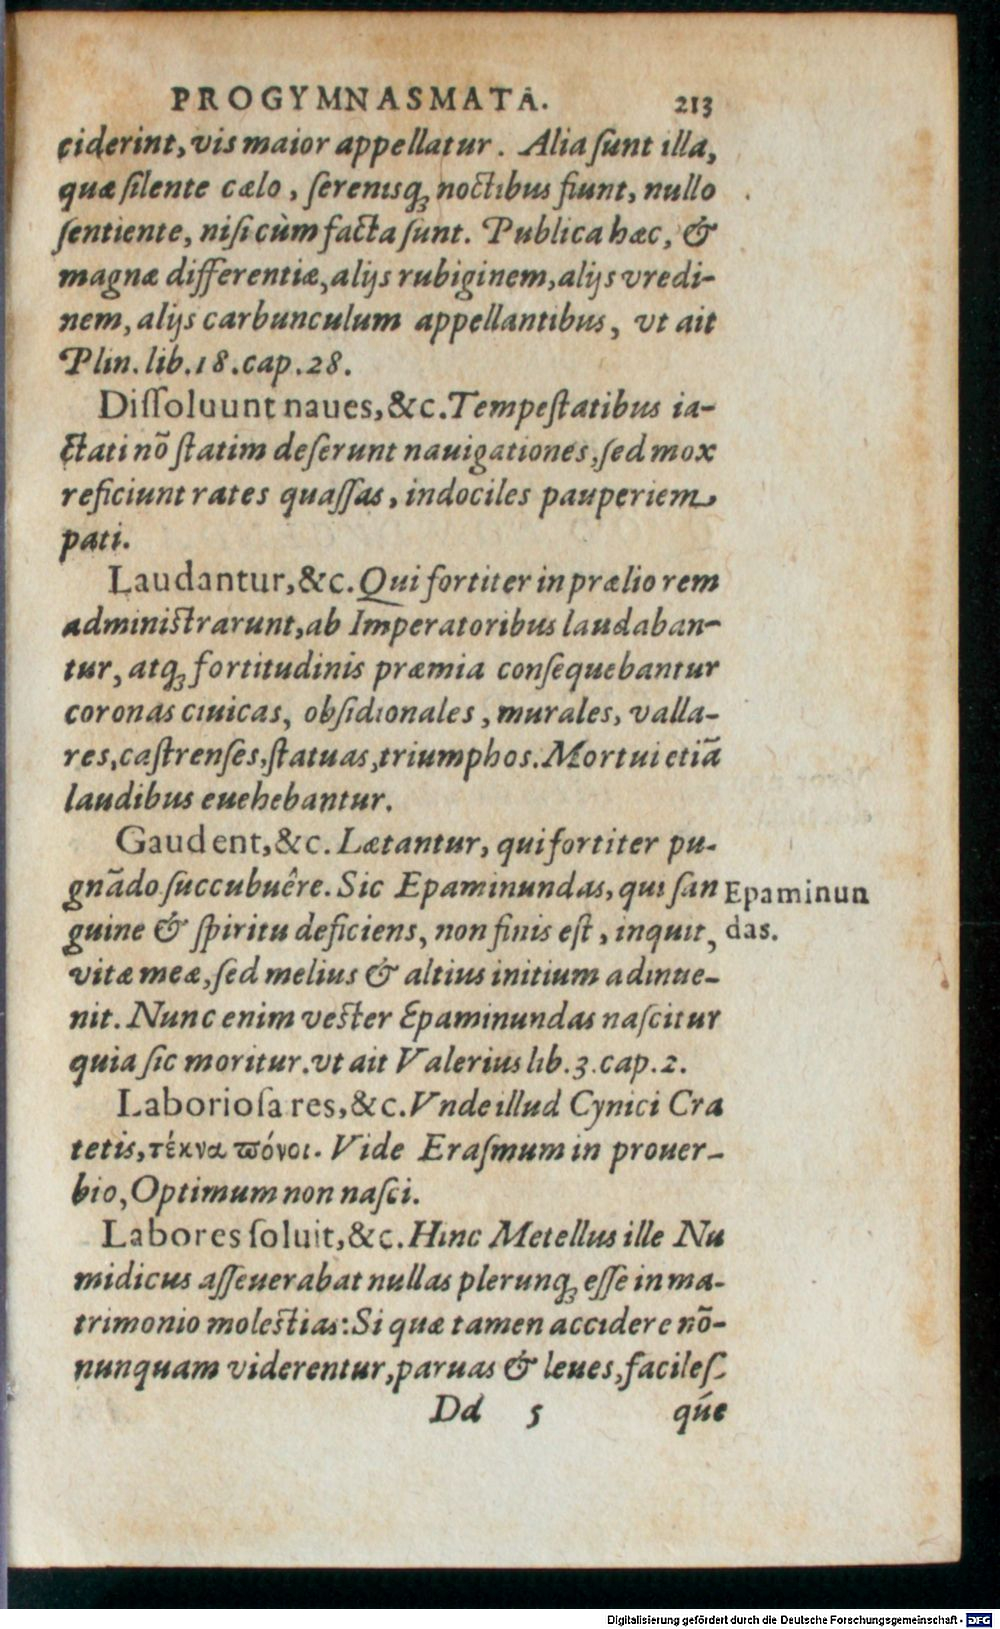 PROGYMNASMATA. 213
ciderint, vis maior appellatur. Alia ſunt illa,
quæ ſilente cælo, ſerenisq́ꝫ noctibus fiunt, nullo
ſentiente, niſi cùm facta ſunt. Publica hæc, &
magnæ differentiæ, alijs rubiginem, alijs vredi-
nem, alijs carbunculum appellantibus, vt ait
Plin. lib. 18. cap. 28.
Diſſoluunt naues, &c. Tempeſtatibus ia-
ctati nō ſtatim deſerunt nauigationes, ſed mox
reficiunt rates quaſſas, indociles pauperiem
pati.
Laudantur, &c. Qui fortiter in prælio rem
adminiſtrarunt, ab Imperatoribus laudaban-
tur, atqꝫ fortitudinis præmia conſequebantur
coronas ciuicas, obſidionales, murales, valla-
res, caſtrenſes, ſtatuas, triumphos. Mortui etiā
laudibus euehebantur.
Gaudent, &c. Lætantur, qui fortiter pu-
gnādo ſuccubuêre. Sic Epaminundas, qui ſan
guine & ſpiritu deficiens, non finis eſt, inquit,
vitæ meæ, ſed melius & altius initium aduue-
nit. Nunc enim veſter Epaminundas naſcitur
quia ſic moritur. vt ait Valerius lib. 3. cap. 2.
Epaminun
das.
Laborioſa res, &c. Vnde illud Cynici Cra
tetis, τέκνα πόνοι. Vide Eraſmum in prouer-
bio, Optimum non naſci.
Labores ſoluit, &c. Hinc Metellus ille Nu
midicus aſſeuerabat nullas plerunqꝫ eſſe in ma-
trimonio moleſtias: Si quæ tamen accidere nō-
nunquam viderentur, paruas & leues, facileſ-
Dd 5 qúe
Digitalisierung gefördert durch die Deutsche Forschungsgemeinschaft - DFG